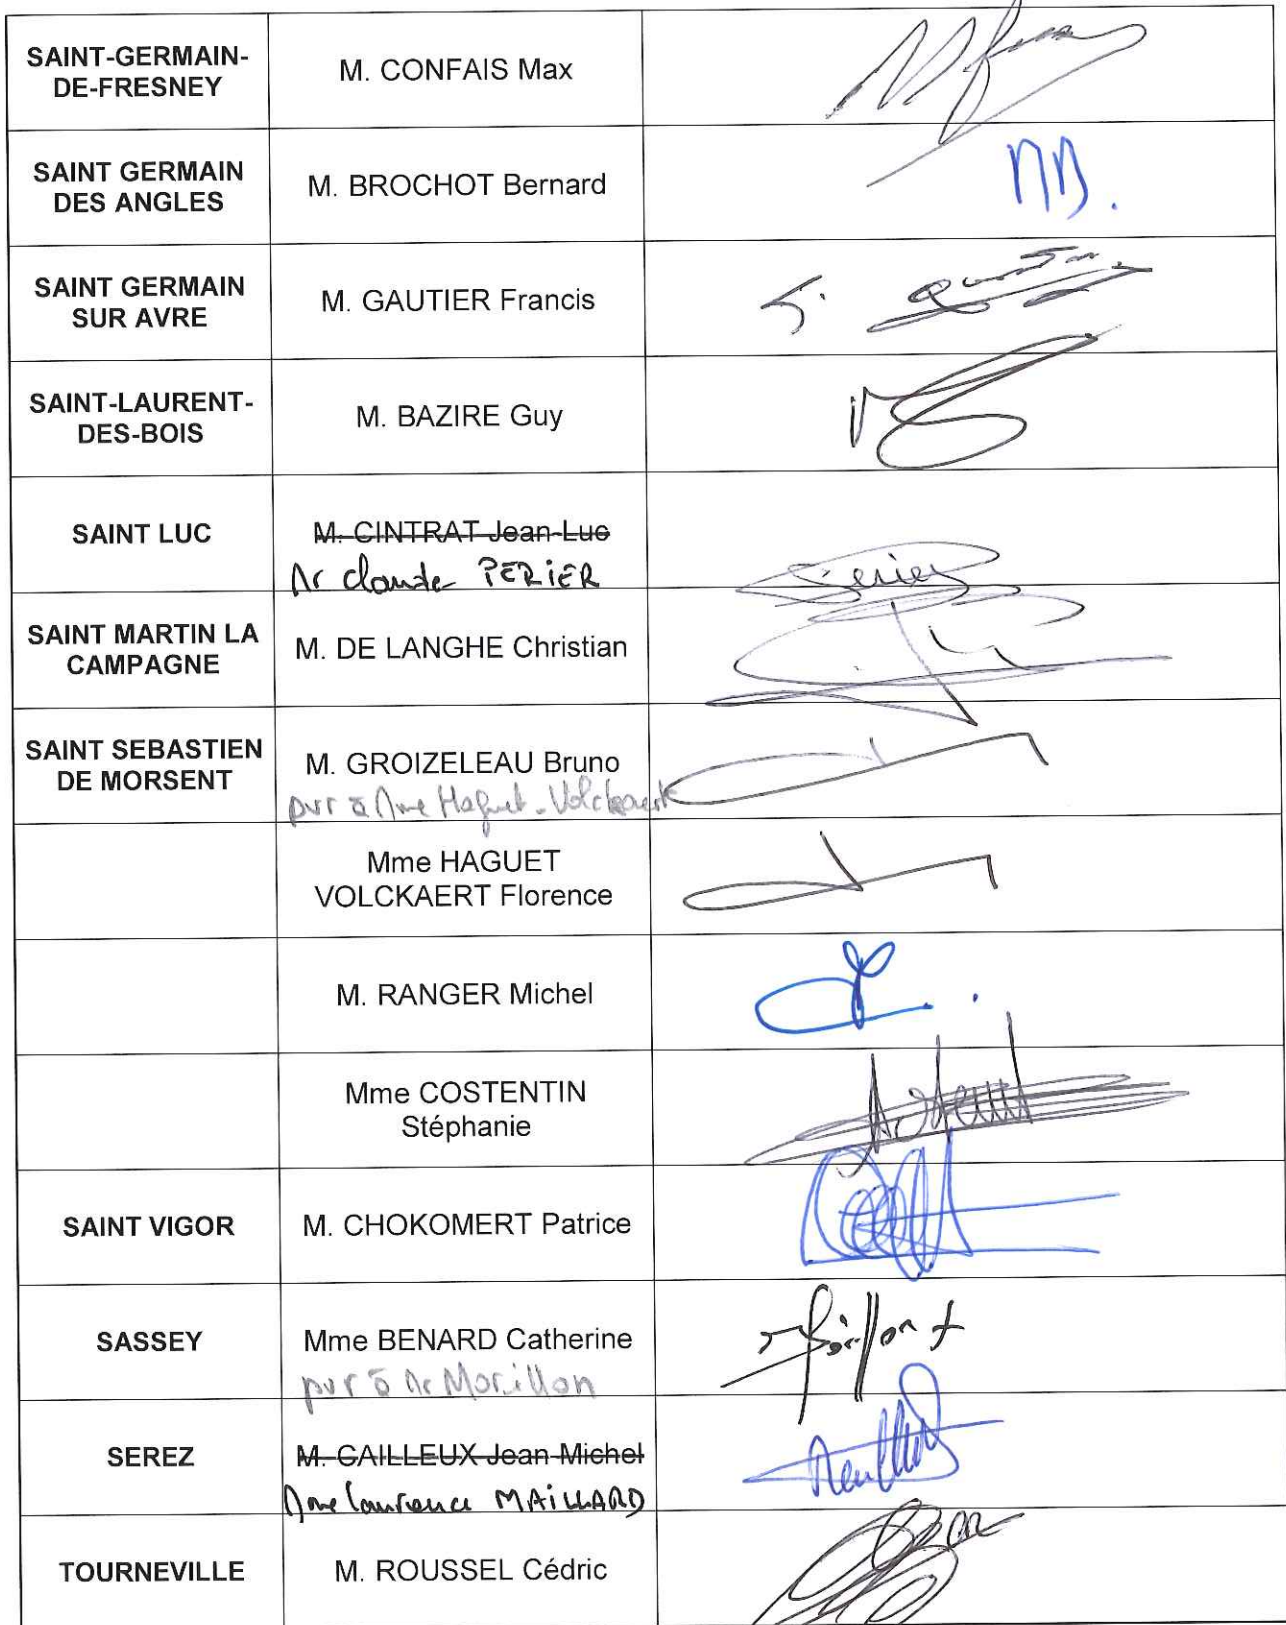 SAINT-GERMAIN-
DE-FRESNEY
M. CONFAIS Max
SAINT GERMAIN
DES ANGLES
M. BROCHOT Bernard
SAINT GERMAIN
SUR AVRE
M. GAUTIER Francis
SAINT-LAURENT-
DES-BOIS
M. BAZIRE Guy
SAINT LUC
M. CINTRAT Jean-Luc
Mr Claude PERIER
SAINT MARTIN LA
CAMPAGNE
M. DE LANGHE Christian
SAINT SEBASTIEN
DE MORSENT
M. GROIZELEAU Bruno
pvr à Mme Haguet-Volckaert
Mme HAGUET
VOLCKAERT Florence
M. RANGER Michel
Mme COSTENTIN
Stéphanie
SAINT VIGOR
M. CHOKOMERT Patrice
SASSEY
Mme BENARD Catherine
pvr à Mr Morillon
SEREZ
M. CAILLEUX Jean-Michel
Mme Laurence MAILLARD
TOURNEVILLE
M. ROUSSEL Cédric